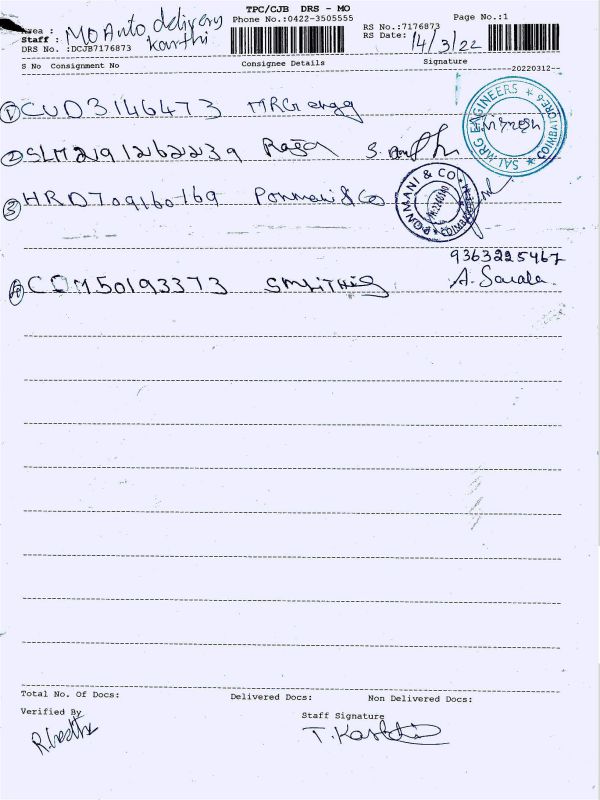 TPC/CJB DRS - MO
Phone No.:0422-3505555
RS No.:7176873
Page No.:1
Area :
Staff : MO Auto delivery
karthi
DRS No. :DCJB7176873
RS Date: 14/3/22
S No Consignment No Consignee Details Signature
20220312--
1 CUD3146473 MRG engg
SAI MRG ENGINEERS * COIMBATORE-6 *
2 SLM2191262239 Raja
3 HRD709160169 Ponmani & Co
PONMANI & CO.
9363225467
4 COM50193373 A. Sarala
Total No. Of Docs: Delivered Docs: Non Delivered Docs:
Verified By
Staff Signature
T. Karthi